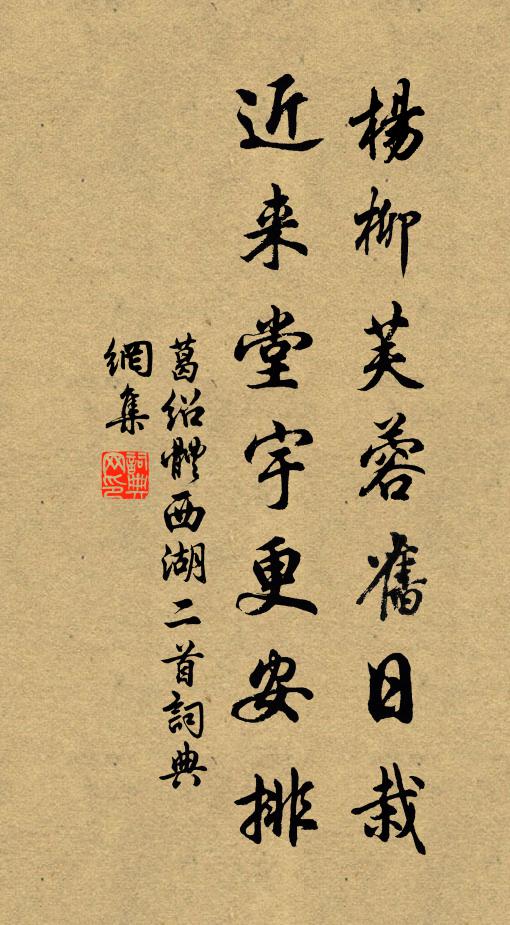 楊柳芙蓉舊日栽
近来堂宇更安排
葛紹體西湖二首詞典
網集
詞典
网印